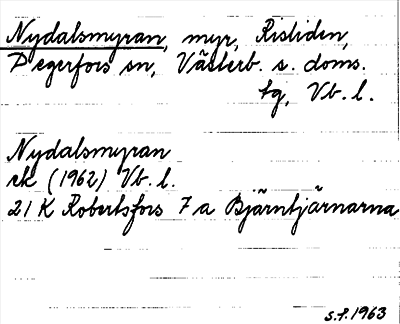 Nydalsmyran, myr, Risliden,
Degerfors sn, Västerb. s. doms.
tg, Vb. l.
Nydalsmyran
ek (1962) Vb. l.
21 K Robertsfors 7 a Bjärntjärnarna
s.f. 1963